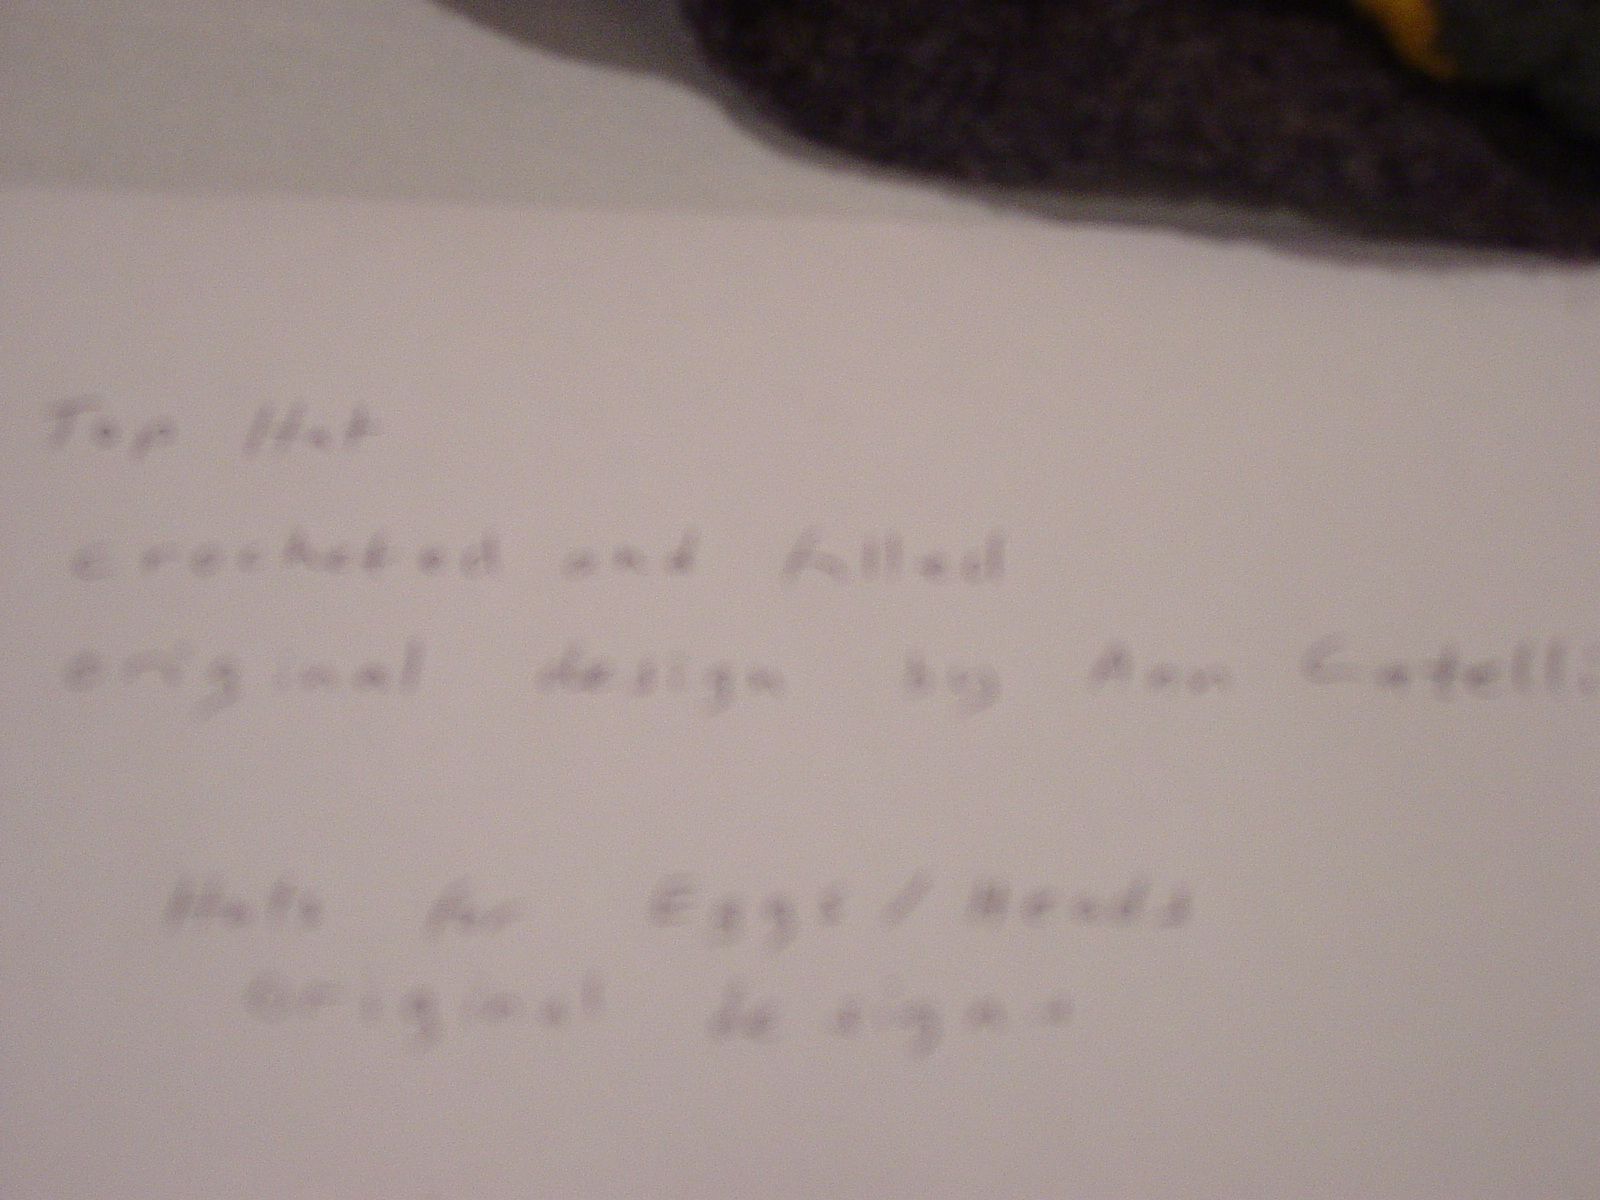 Top Hat
crocheted and felled
original design by Ann Catelli
Hats for Eggs / Heads
original designs